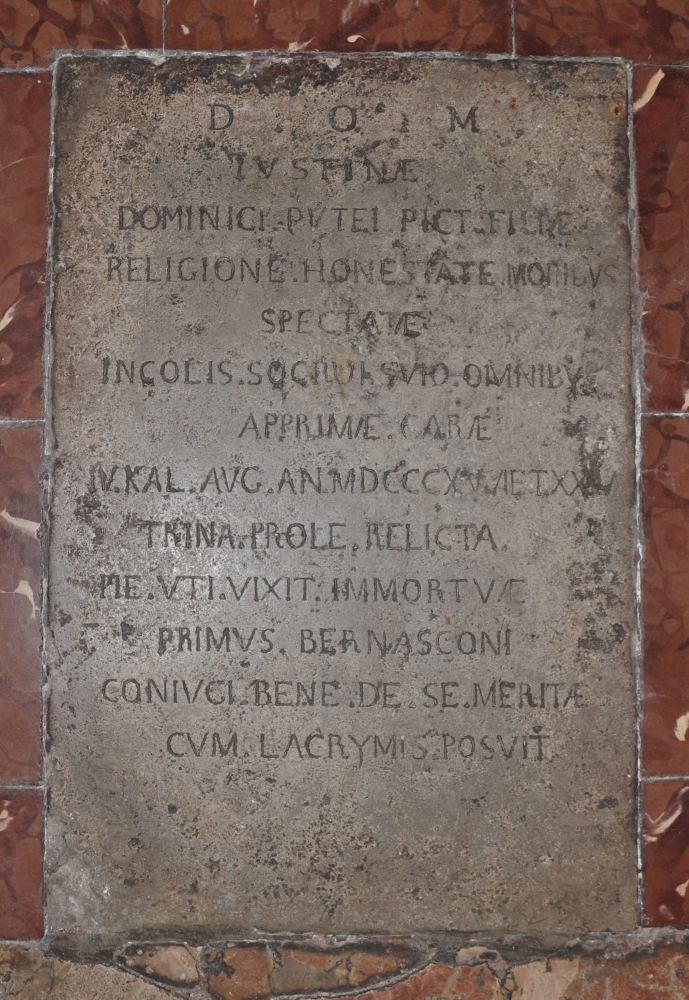 D O M
IVSTINÆ
DOMINICI.PVTEI.PICT.FILIÆ
RELIGIONE.HONESTATE.MORIBVS
SPECTATÆ
INCOLIS.SOCRUI.SVIO.OMNIBV
APPRIMÆ.CARÆ
IV.KAL.AVG.AN.MDCCCXV.
TRINA.PROLE.RELICTA.
PIE.VTI.VIXIT.IMMORTVÆ
PRIMVS.BERNASCONI
CONIVGI.BENE.DE.SE.MERITÆ
CVM.LACRYMIS.POSVIT